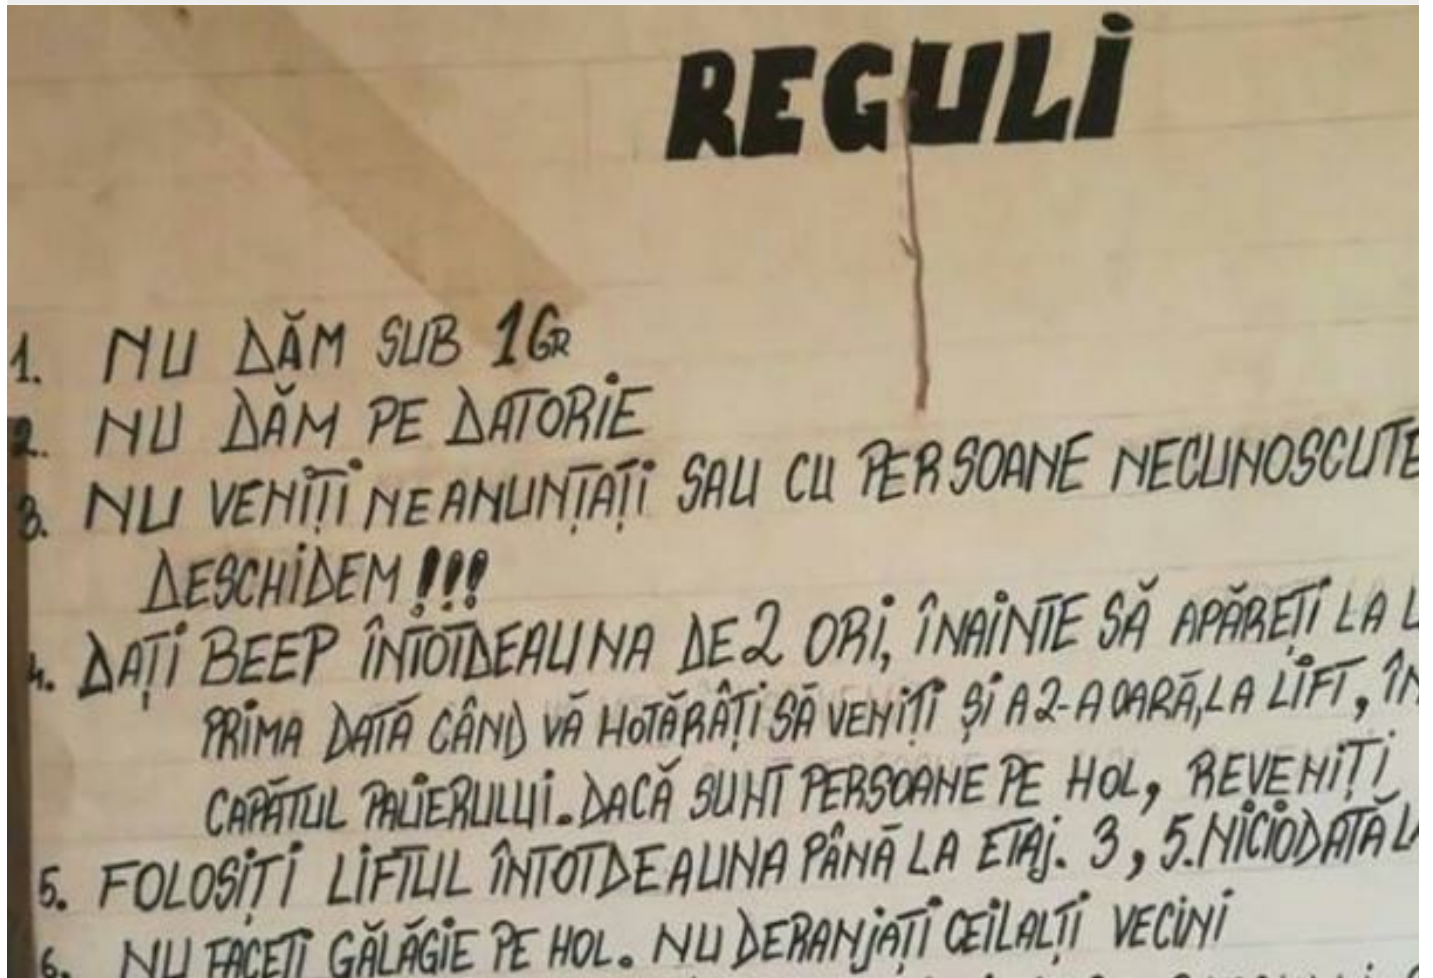 REGULI
1. NU DĂM SUB 1GR
2. NU DĂM PE DATORIE
3. NU VENIȚI NEANUNȚAȚI SAU CU PERSOANE NECUNOSCUTE
DESCHIDEM!!!
4. DAȚI BEEP ÎNTOTDEAUNA DE 2 ORI, ÎNAINTE SĂ APĂREȚI LA
PRIMA DATĂ CÂND VĂ HOTĂRÂȚI SĂ VENIȚI ȘI A 2-A OARĂ, LA LIFT, ÎN
CAPĂTUL PALIERULUI. DACĂ SUNT PERSOANE PE HOL, REVENIȚI
5. FOLOSIȚI LIFTUL ÎNTOTDEAUNA PÂNĂ LA ETAJ. 3, 5. NICIODATĂ
6. NU FACEȚI GĂLĂGIE PE HOL. NU DERANJAȚI CEILALȚI VECINI